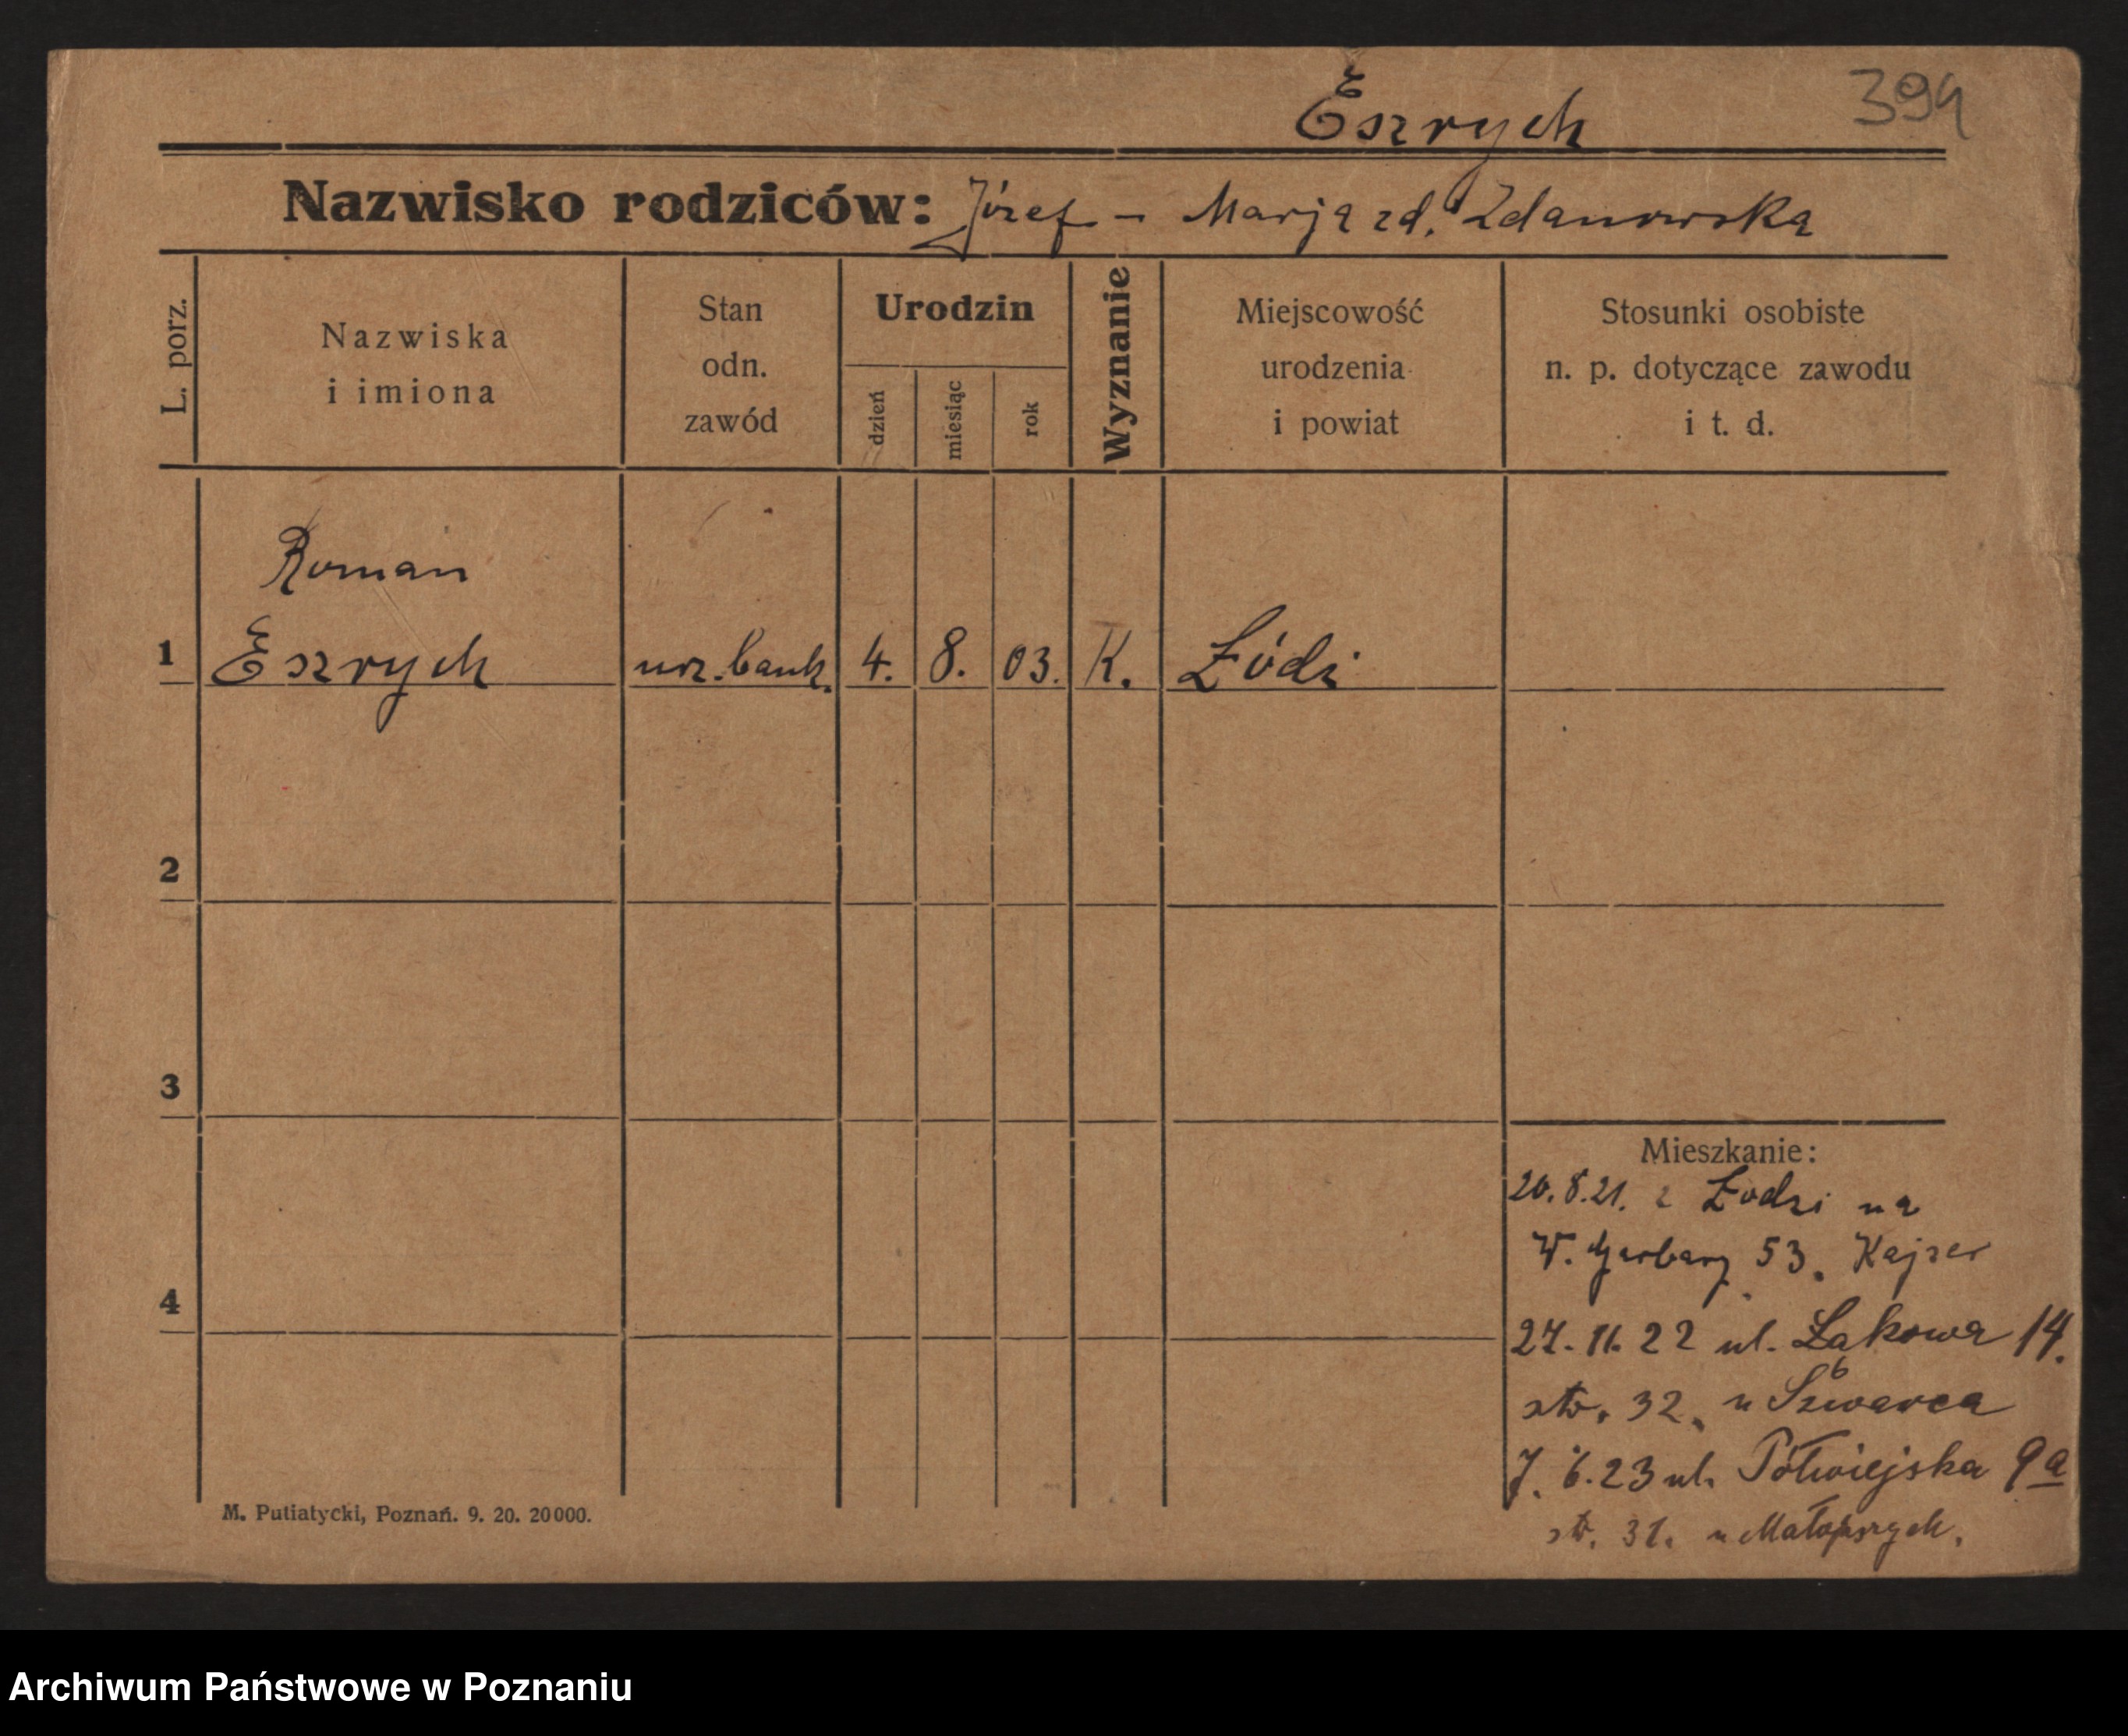 Eszrych 394
Nazwisko rodziców: Józef - Marja zd. Zdanowska
L. porz.
Nazwiska
i imiona
Stan
odn.
zawód
Urodzin
dzień
miesiąc
rok
Wyznanie
Miejscowość
urodzenia
i powiat
Stosunki osobiste
n. p. dotyczące zawodu
i t. d.
Roman
1 Eszrych urz. bank. 4. 8. 03. K. Łódź
2
3
4
Mieszkanie:
20.8.21. z Łodzi na
W. Garbary 53. Kajzer
27. 11. 22 ul. Łąkowa 14.
str. 32. u Szwarca
7. 6. 23 ul. Półwiejska 9a
str. 31. u
M. Putiatycki, Poznań. 9. 20. 20000.
Archiwum Państwowe w Poznaniu